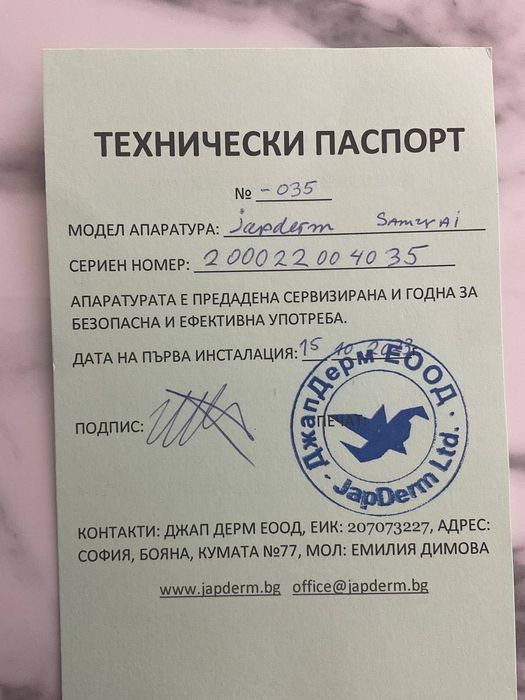 ТЕХНИЧЕСКИ ПАСПОРТ
№ -035
МОДЕЛ АПАРАТУРА: japderm SAMURAI
СЕРИЕН НОМЕР: 200022004035
АПАРАТУРАТА Е ПРЕДАДЕНА СЕРВИЗИРАНА И ГОДНА ЗА
БЕЗОПАСНА И ЕФЕКТИВНА УПОТРЕБА.
ДАТА НА ПЪРВА ИНСТАЛАЦИЯ: 15 10
ПОДПИС:
ПЕЧАТ:
ДжапДерм ЕООД
JapDerm Ltd.
КОНТАКТИ: ДЖАП ДЕРМ ЕООД, ЕИК: 207073227, АДРЕС:
СОФИЯ, БОЯНА, КУМАТА №77, МОЛ: ЕМИЛИЯ ДИМОВА
www.japderm.bg office@japderm.bg